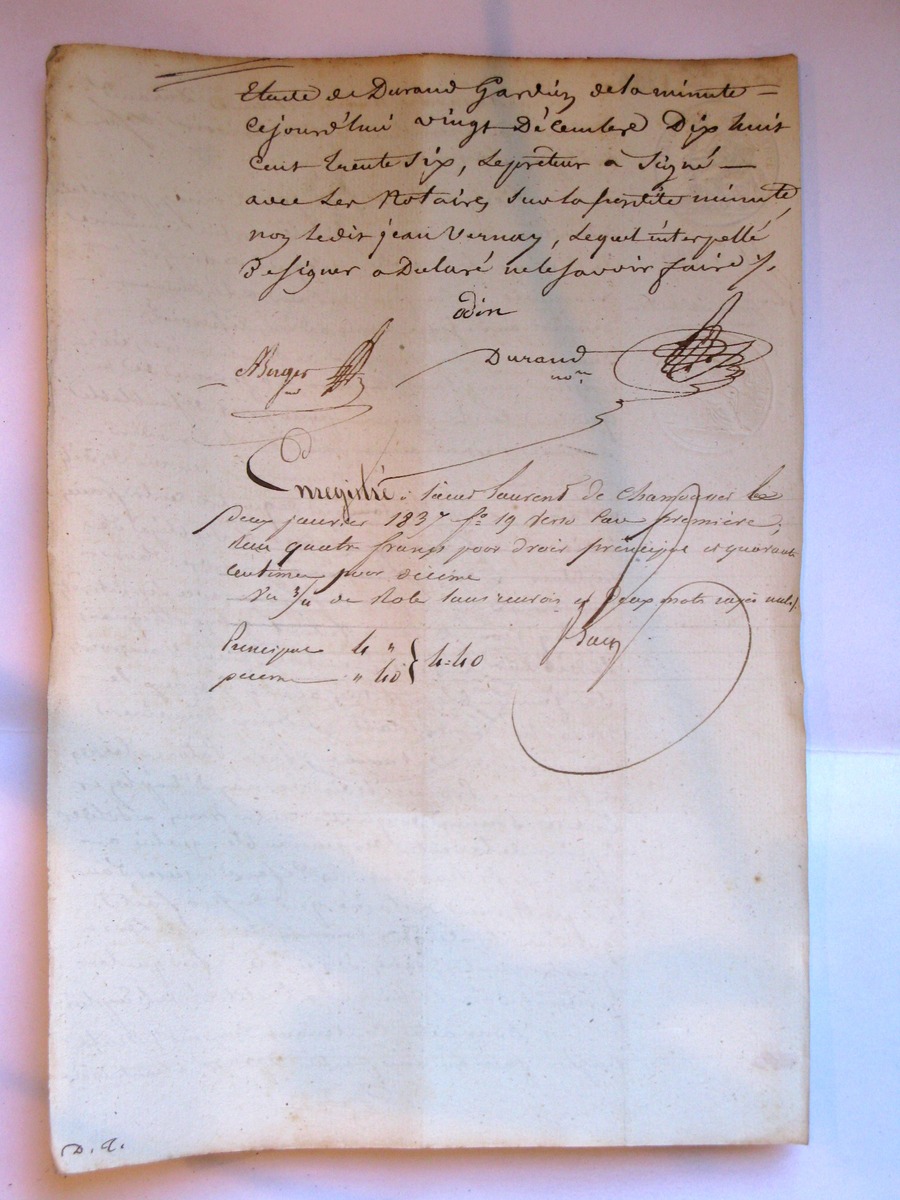 Etude de Durand Gardien de la minute
Cejourd'hui vingt Décembre Dix huit
Cent trente Six, Le prêteur a Signé
avec Les Notaires Sur la susdite minute
non ledit jean Vernay, Lequel interpellé
De signer a Déclaré ne le Savoir faire
odin
Berger
Durand
nore
Enregistré à Saint Laurent de Chamousset le
deux janvier 1837 fo 19 verso Case première,
Reçu quatre francs pour droit principal et quarante
Centimes pour décime
de Role Sans renvois et Deux mots rayés nuls
Principal 4 "
4=40
décime " 40
D. q.